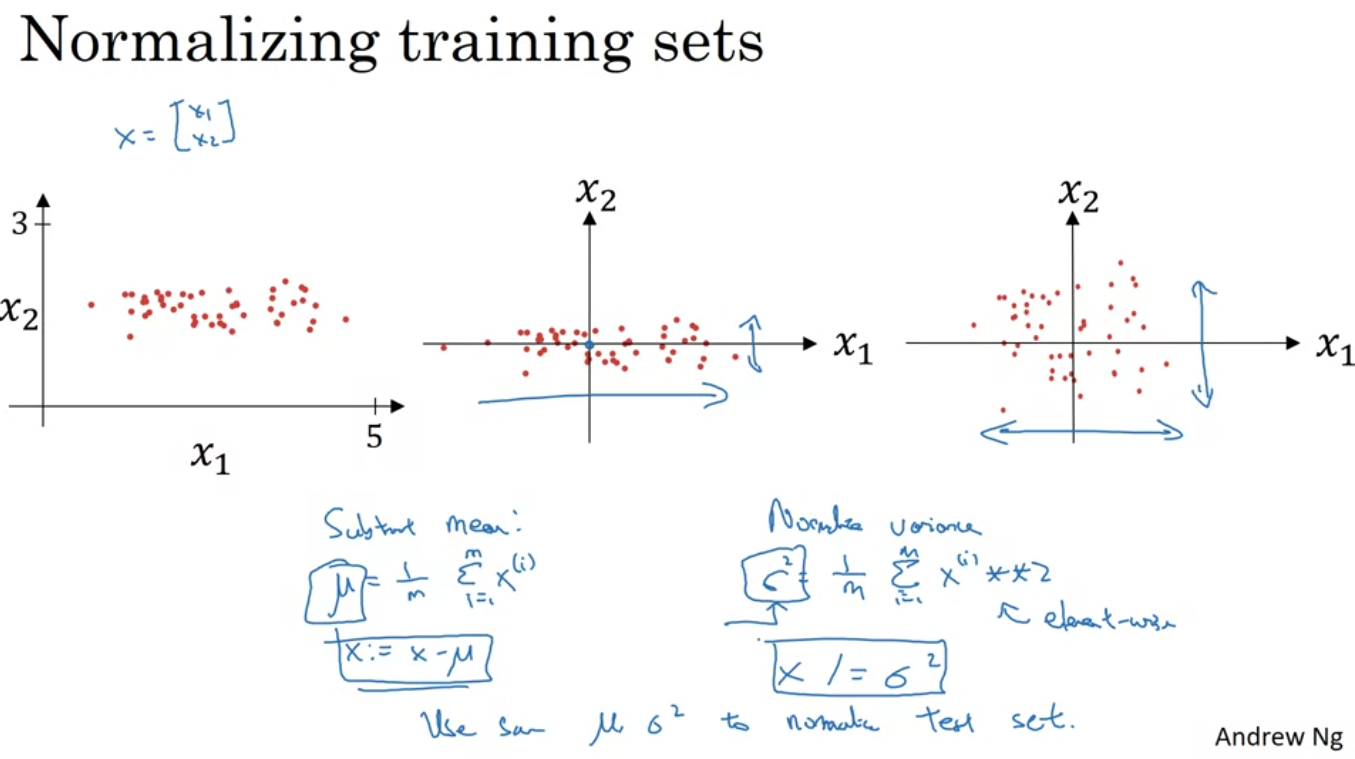 Normalizing training sets
x = [x1 x2]
3
x2
5
x1
x2
x1
x2
x1
Subtract mean:
μ = 1/m Σ i=1 m x(i)
x := x - μ
Normalize variance
σ² = 1/m Σ i=1 m x(i) **2
element-wise
x /= σ²
Use same μ σ² to normalize test set.
Andrew Ng